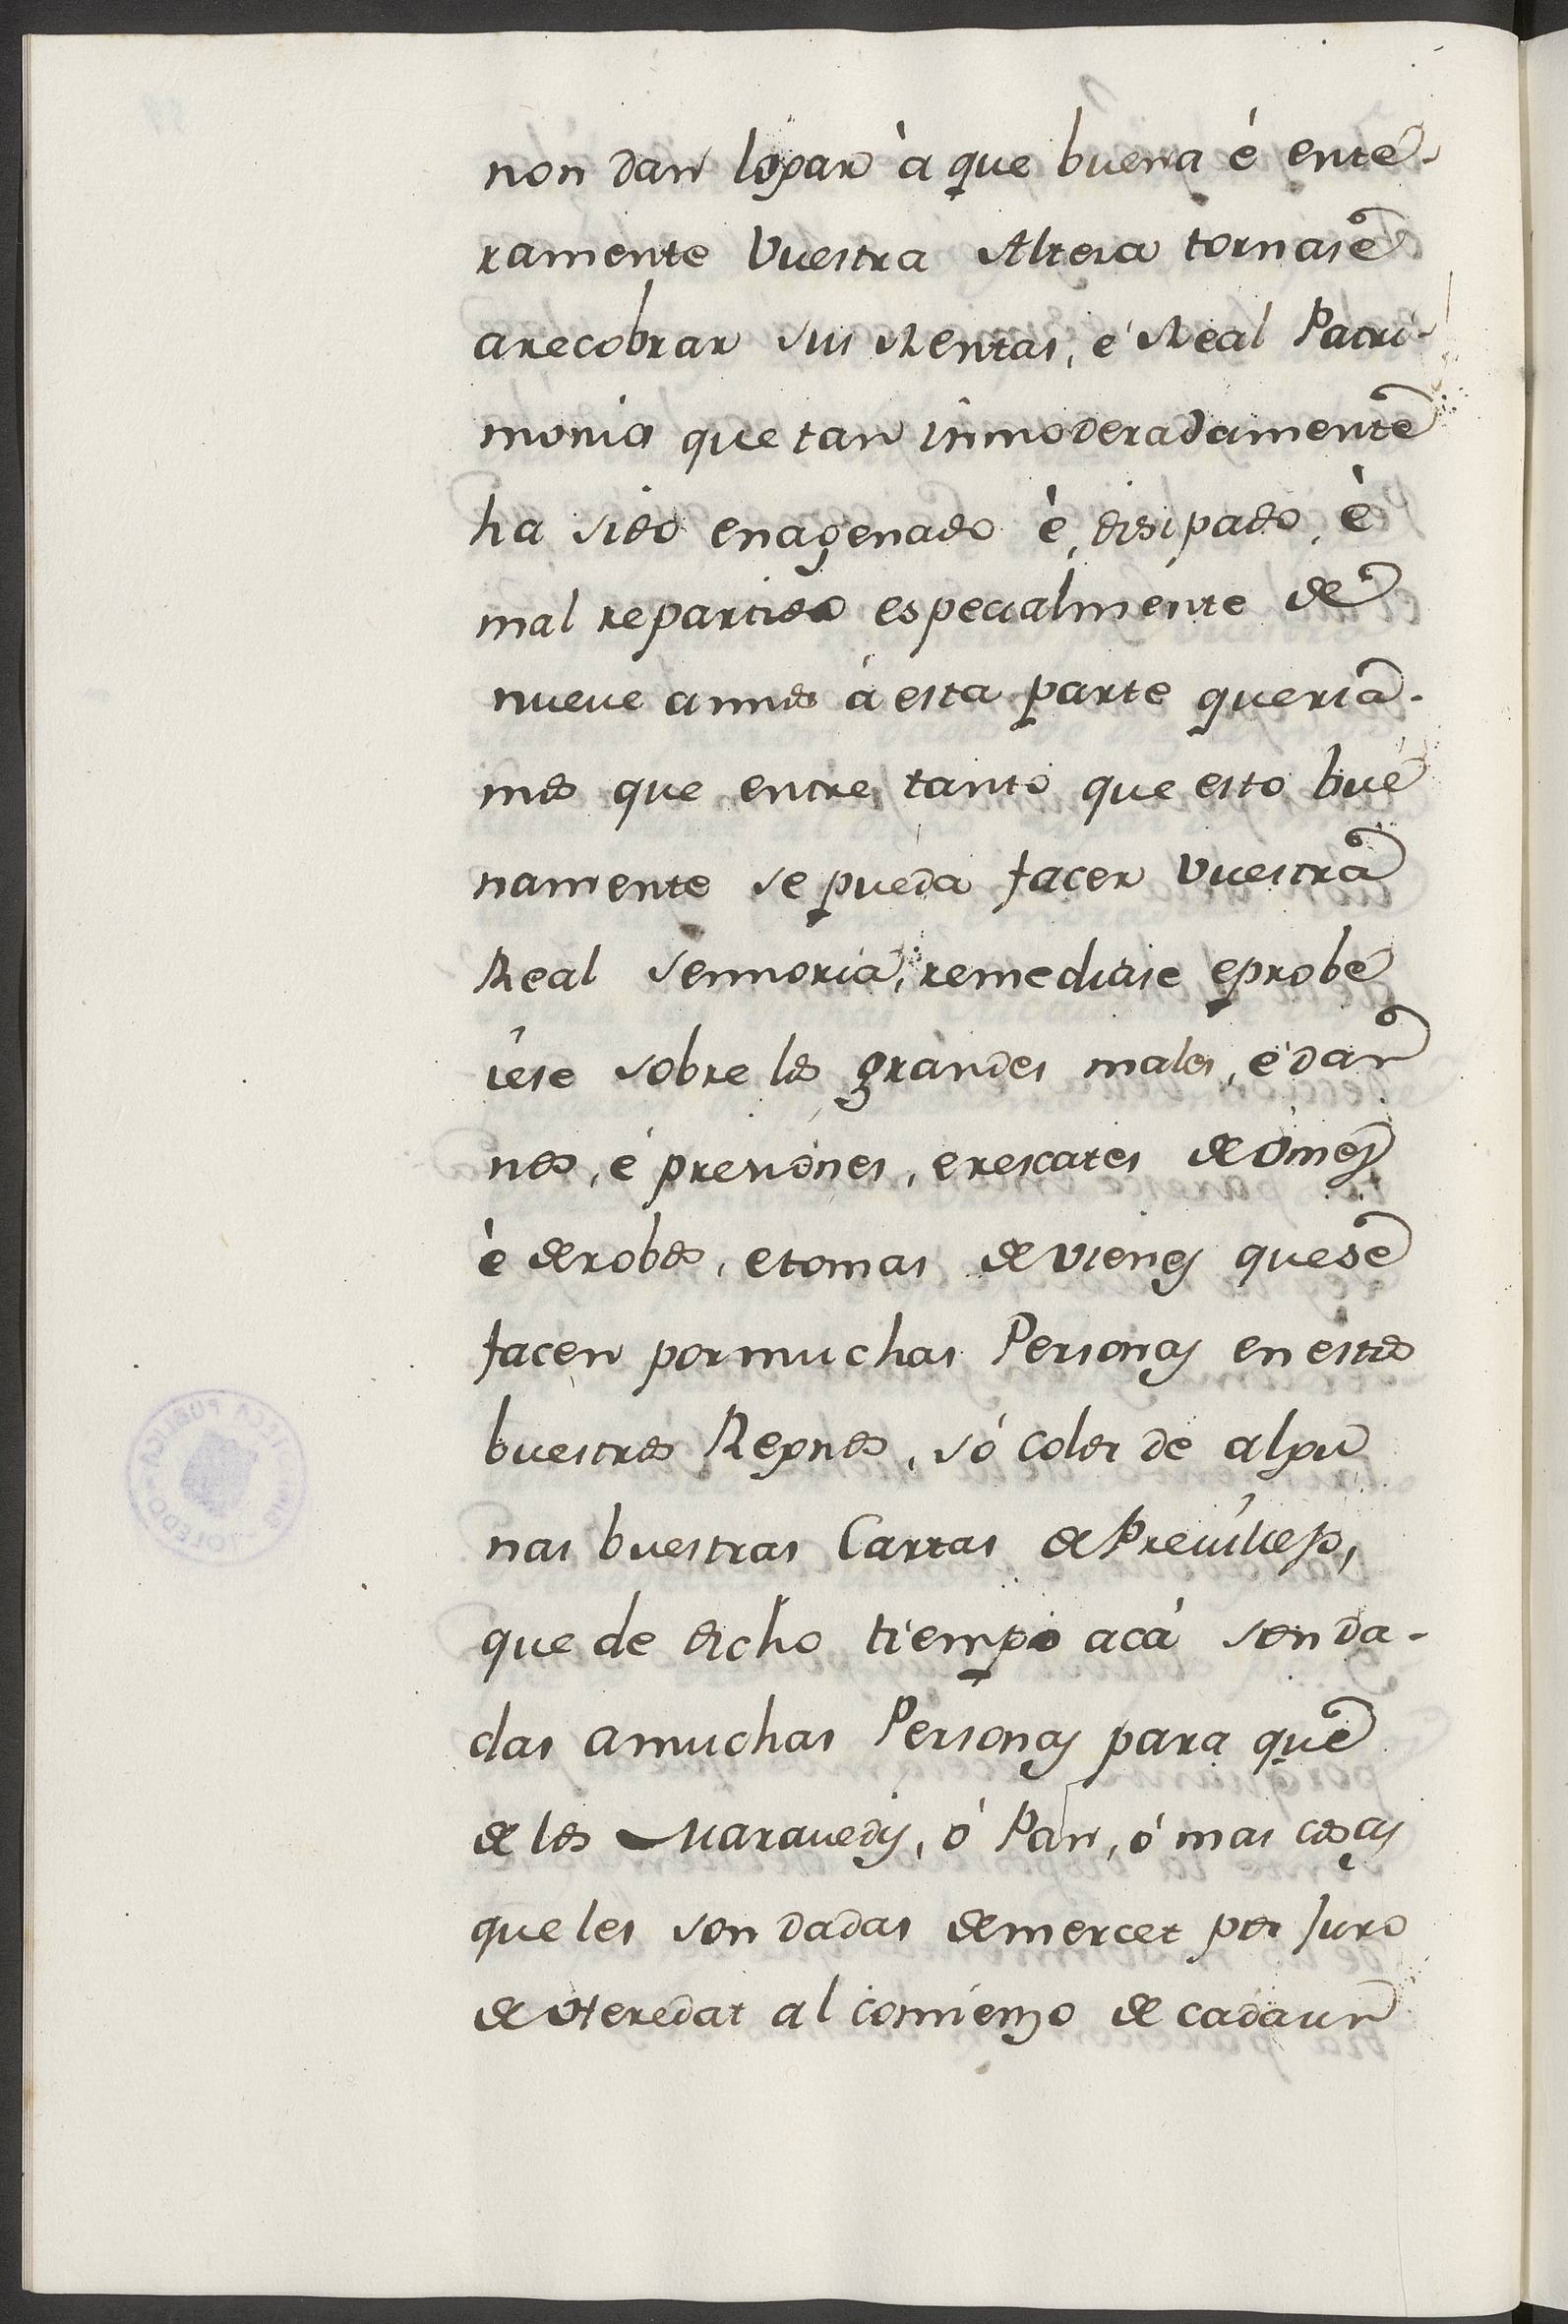 non dan logar à que buena é ente-
ramente Vuestra Alteza tornase
arecobrar sus Rentas, é Real Patri-
monio que tan inmoderadamente
ha sido enagenado è, disipado, è
mal repartido especialmente de
nueve annos á esta parte queria-
mos que entre tanto que esto bue
namente se pueda facer Vuestra
Real Sennoria, remediase eprobe
iese sobre los grandes males, é dan
nos, é presiones, erescates de omes
è de robos, etomas de vienes quese
facen pormuchas Personas en estos
buestros Regnos, só color de algu
nas buestras Cartas de Previllejo,
que de dicho tiempo acá son da-
das amuchas Personas para que
de los Maravedis, ó Pan, ó mas cosas
que les son dadas demercet por Juro
de Heredat al comienzo de cadaun